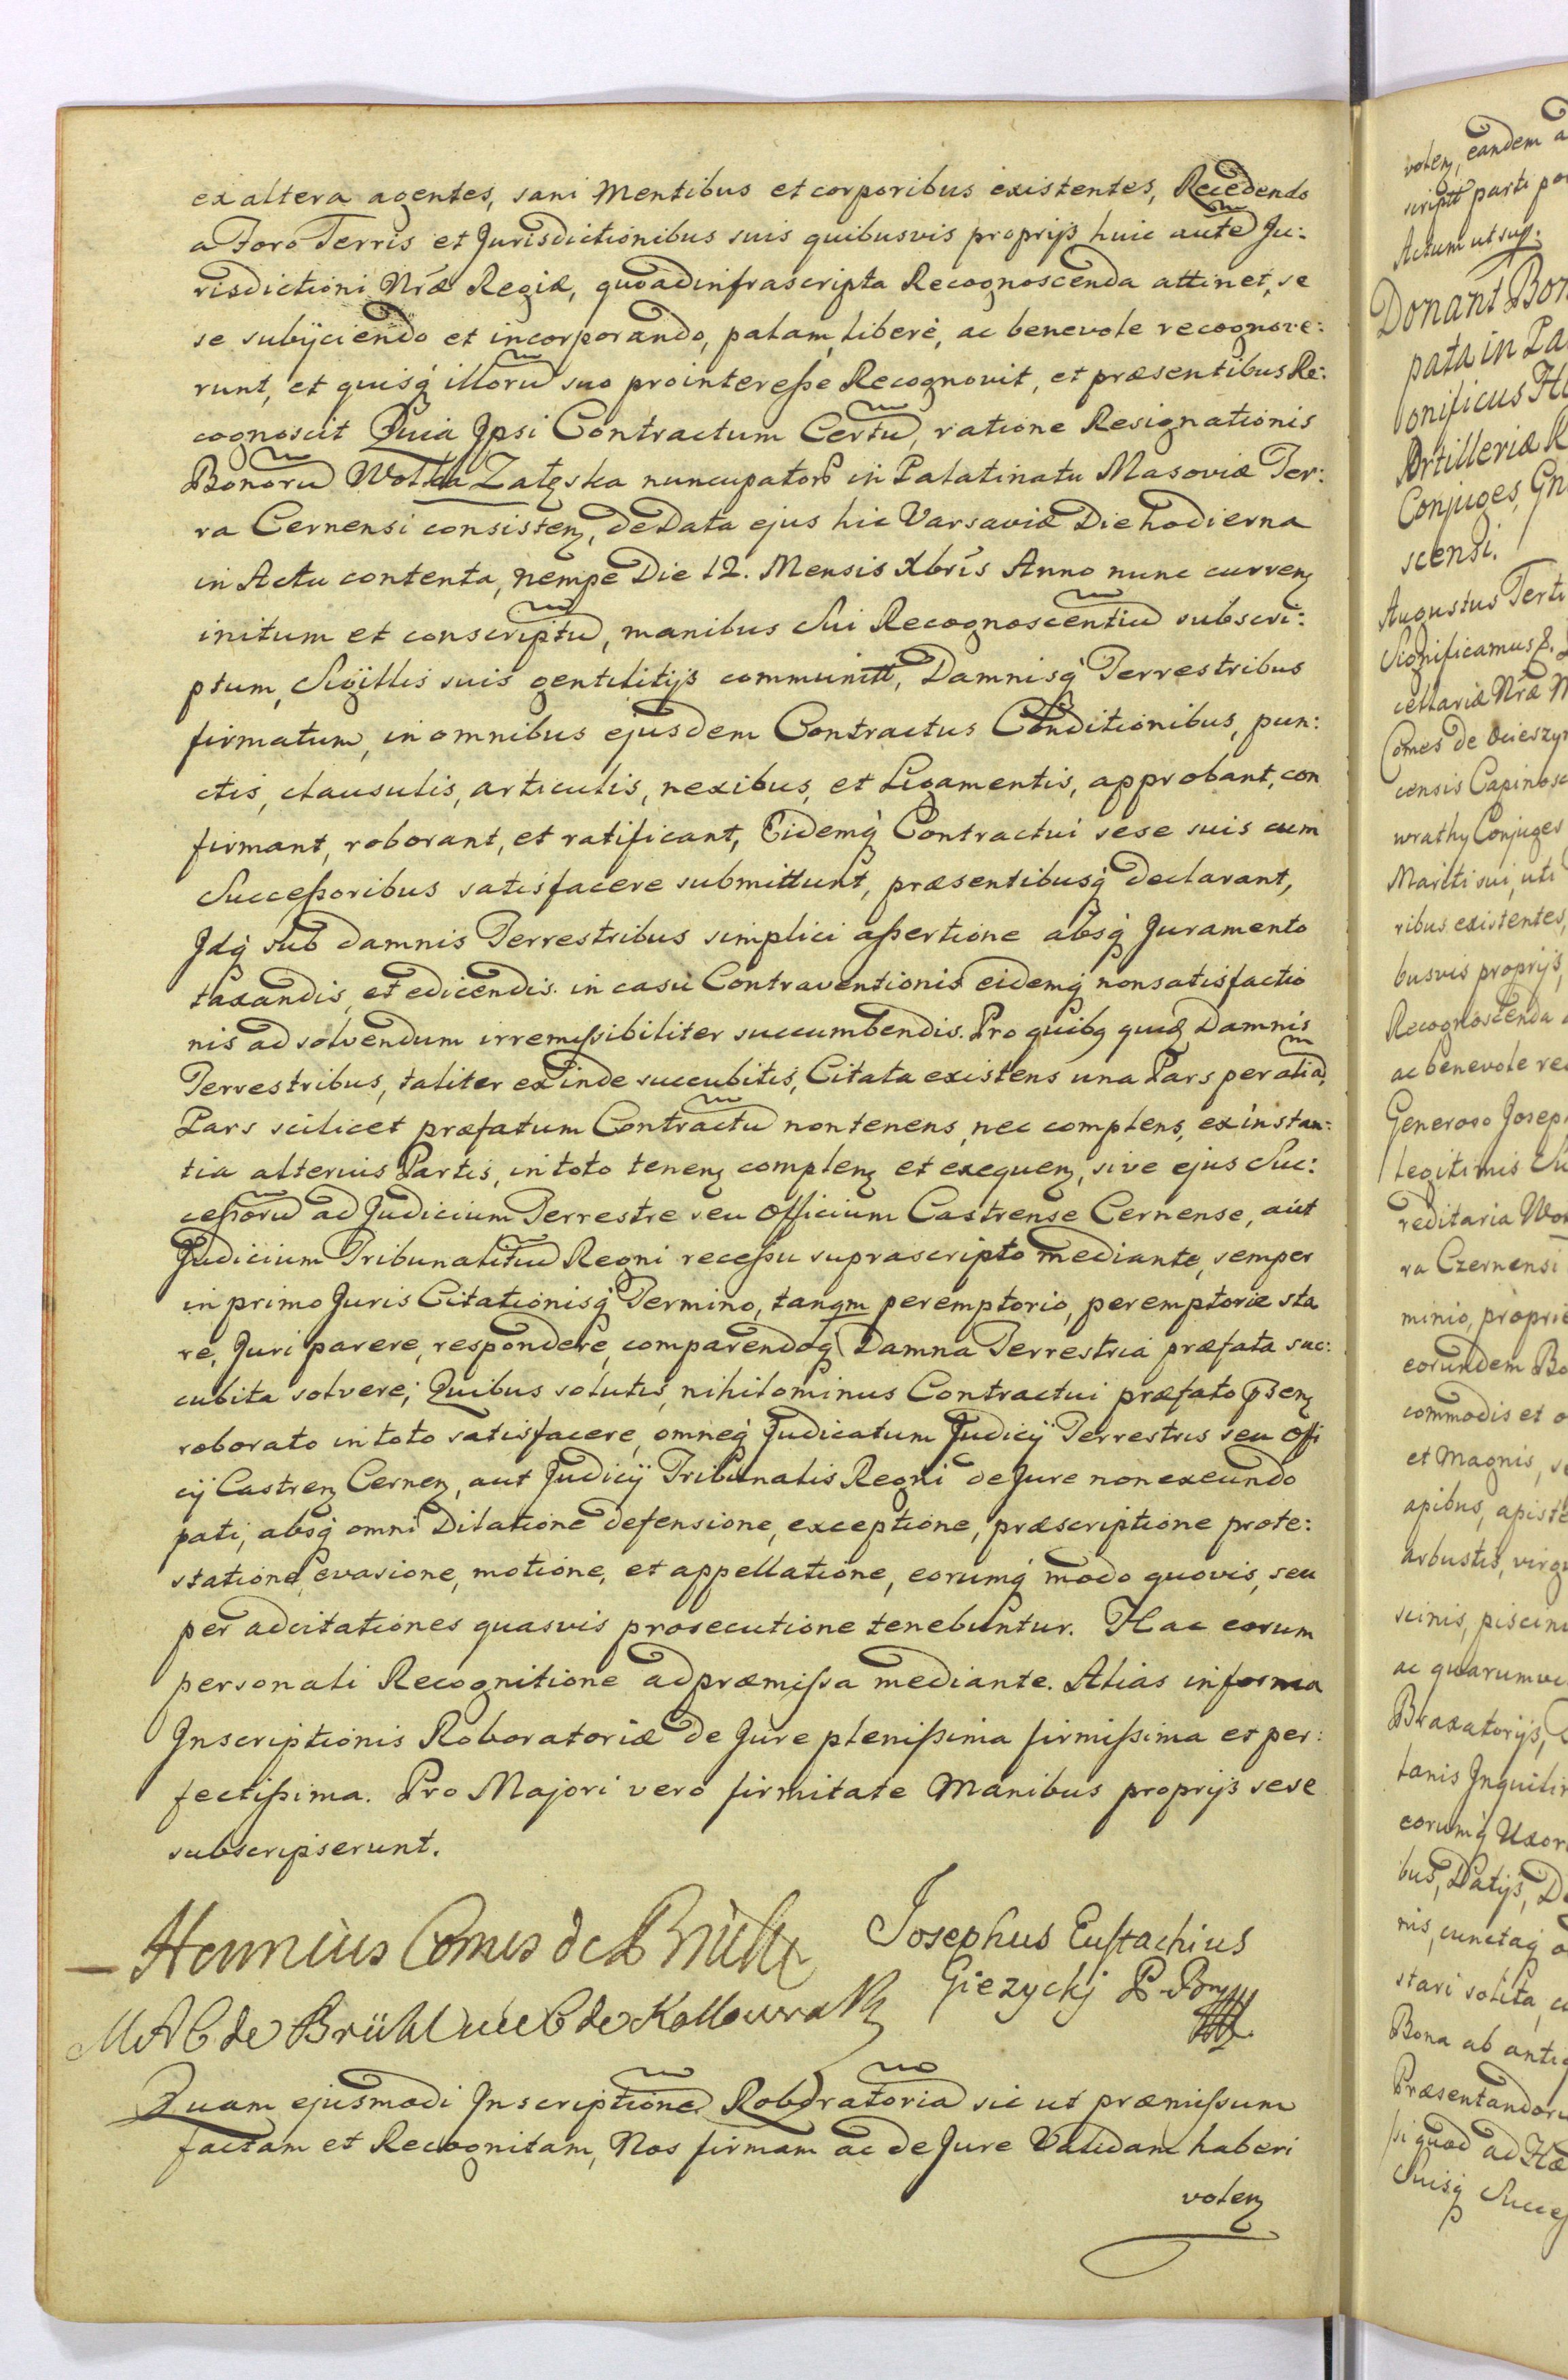 ex altera agentes, sani Mentibus et corporibus existentes, Recedendo
a Foro Terris et Jurisdictionibus suis quibusvis proprijs huic autẽ Ju:
risdictioni Nrǣ Regiæ, quoad infrascripta Recognoscenda attinet, se
se subijciendo et incorporando, palam, liberè, ac benevole recognove:
runt, et quisq́ illorũ suo pro interesse Recognovit, et præsentibus Re:
cognoscit Quia Jpsi Contractum Certũ, ratione Resignationis
Bonorũ Wolka Załęska nuncupator in Palatinatu Masoviæ Ter:
ra Cernensi consisteꝫ, de Data ejus hic Varsaviæ Die hodierna
in Actu contenta, nempe Die 12. Mensis Xbris Anno nunc curreꝫ
initum et conscriptũ, manibus Sui Recognoscentiũ subscri:
ptum, Sigillis suis gentilitijs communitt, Damnisq́ Terrestribus
firmatum, in omnibus ejusdem Contractus Conditionibus, pun:
ctis, clausulis, articulis, nexibus, et Ligamentis, approbant, con
firmant, roborant, et ratificant, Eidemq́ Contractui sese suis cum
Successoribus satisfacere submittunt, præsentibusq́ declarant,
Jdq́ sub damnis Terrestribus simplici assertione absq́ Juramento
taxandis, et edicendis in casu Contraventionis eidemq́ nonsatisfactio
nis ad solvendum irremissibiliter succumbendis. Pro quibꝫ quiḍ Damnis
Terrestribus, taliter exinde succubitis, Citata existens una Pars per aliã,
Pars scilicet præfatum Contractũ non tenens, nec complens, ex instan:
tia alterius Partis, in toto teneꝫ compleꝫ et exequeꝫ, sive ejus Suc:
cessorũ ad Judicium Terrestre seu Officium Castrense Cernense, aut
Judicium Tribunalitiũ Regni recessu suprascripto mediante, semper
in primo Juris Citationisq́ Termino, tanqm peremptorio, peremptorie sta
re, Juri parere, respondere, comparendoq́ Damna Terrestria præfata suc:
cubita solvere; Quibus solutis, nihilominus Contractui præfato p̄seꝫ
roborato in toto satisfacere, omneq́ Judicatum Judicij Terrestris seu Offi
cij Castreꝫ Cerneꝫ, aut Judicij Tribunalis Regni de Jure non exeundo
pati, absq́ omni Dilatione defensione, exceptione, præscriptione prote:
statione, evasione, motione, et appellatione, eorumq́ modo quovis, seu
per adcitationes quasvis prosecutione tenebuntur. Hac eorum
personali Recognitione ad præmissa mediante. Alias in forma
Jnscriptionis Roboratoriæ de Jure plenissima firmissima et per:
fectissima. Pro Majori vero firmitate Manibus proprijs sese
subscripserunt.
Henricus Comes de Brühl
Josephus Eustachius
Giezyckj P.
M A C de Brühl née C de Kollowrath
Quam ejusmodi Jnscriptionẽ Roboratoriã sic ut præmissum
factam et Recognitam, Nos firmam ac de Jure Validam haberi
voleꝫ
voleꝫ, eandem a
scriptt parti
Actum ut sup.
Donant Bon
pata in Pa
onificus
Artilleriæ R
Conjuges, Gn
scensi.
Augustus Terti
Significamus
cellariæ Nræ
Comes de Ocieszyn
censis Capinosc
wrathy Conjuges
Mariti sui, uti
ribus existentes,
busvis proprijs,
Recognoscenda a
ac benevole rec
Generoso Joseph
legitimis
reditaria Wol
ra Czernensi
minio, proprie
eorundem Bo
commodis et o
et Magnis, se
apibus, apiste
arbustis, virgu
scinis, piscini
ac quarumvi
Braxatorijs,
tanis Jnquilin
eorumq́ Uxori
bus, Datijs, D
nis, cunctaq́ o
stari solita, c
Bona ab antiq
Præsentandoru
si quod ad Hæ
Suisq́ Succes